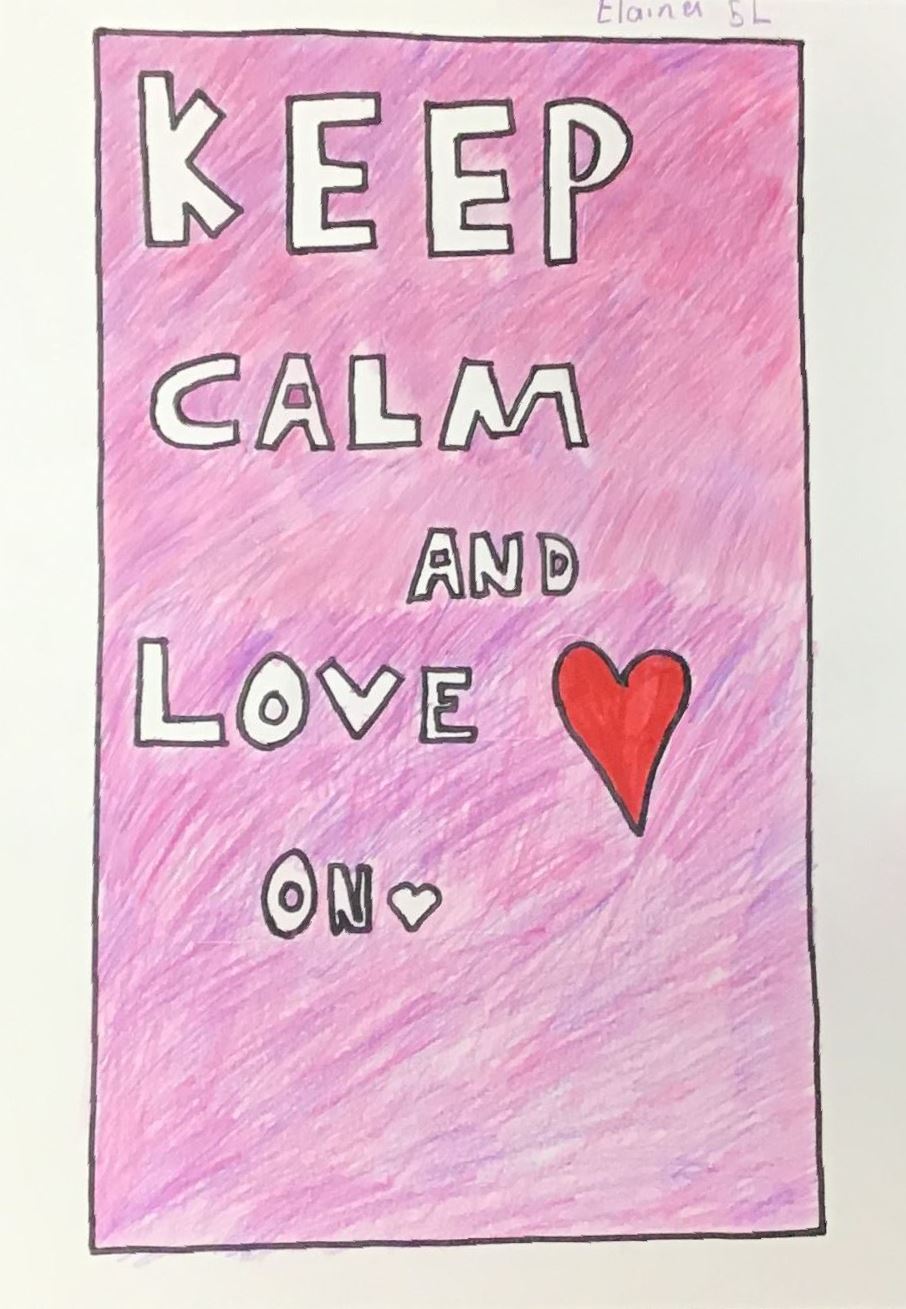 Elaina 5L
KEEP
CALM
AND
LOVE
ON